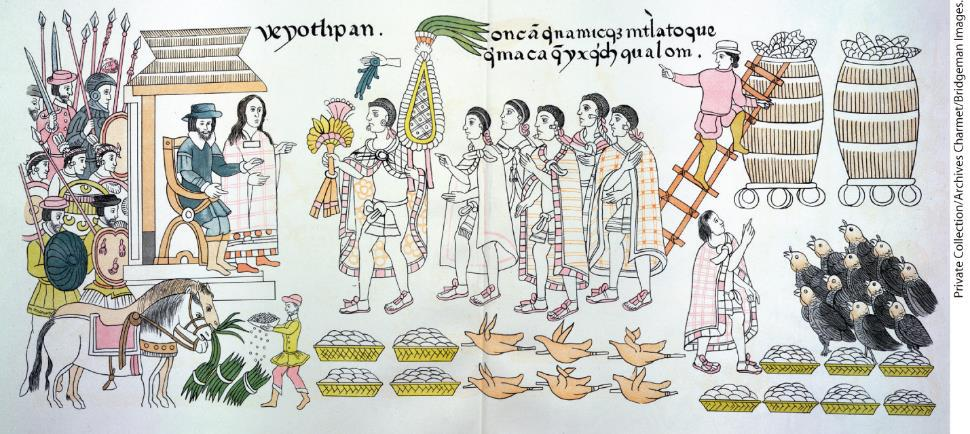 veyotlipan.
oncā q̄namicqȝ mtlatoque
q̄maca q̄yxq̄ch qualom.
Private Collection/Archives Charmet/Bridgeman Images.